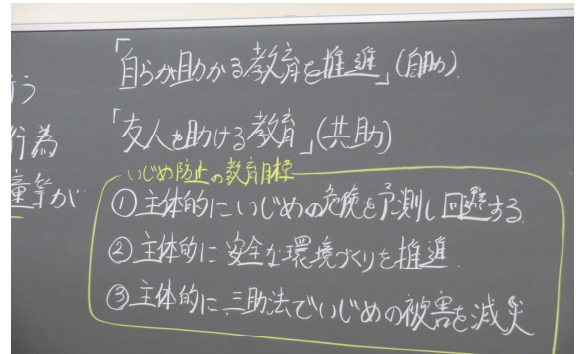 「自らが助かる教育を推進」(自助)
う
「友人を助ける教育」(共助)
行為
いじめ防止の教育目標
童等が
①主体的にいじめの危険を予測し回避する
②主体的に安全な環境づくりを推進
③主体的に三助法でいじめの被害を減災